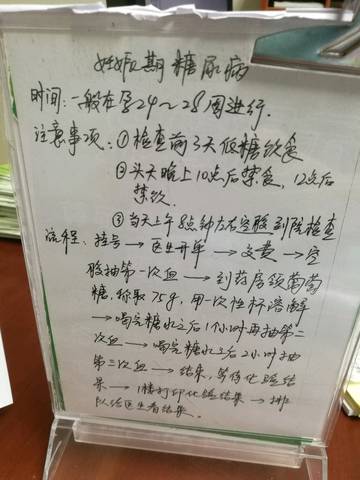 妊娠期糖尿病
时间:一般在孕24~28周进行.
注意事项:①检查前3天低糖饮食
②头天晚上10点后禁食,12点后
禁饮.
③当天上午8点钟左右空腹到院检查
流程:挂号→医生开单→交费→空
腹抽第一次血→到药房领葡萄
糖.称取75g,用一次性杯溶解
→喝完糖水之后1个小时再抽第二
次血→喝完糖水之后2小时抽
第三次血→结束,等待化验结
果→1楼打印化验结果→排
队给医生看结果.